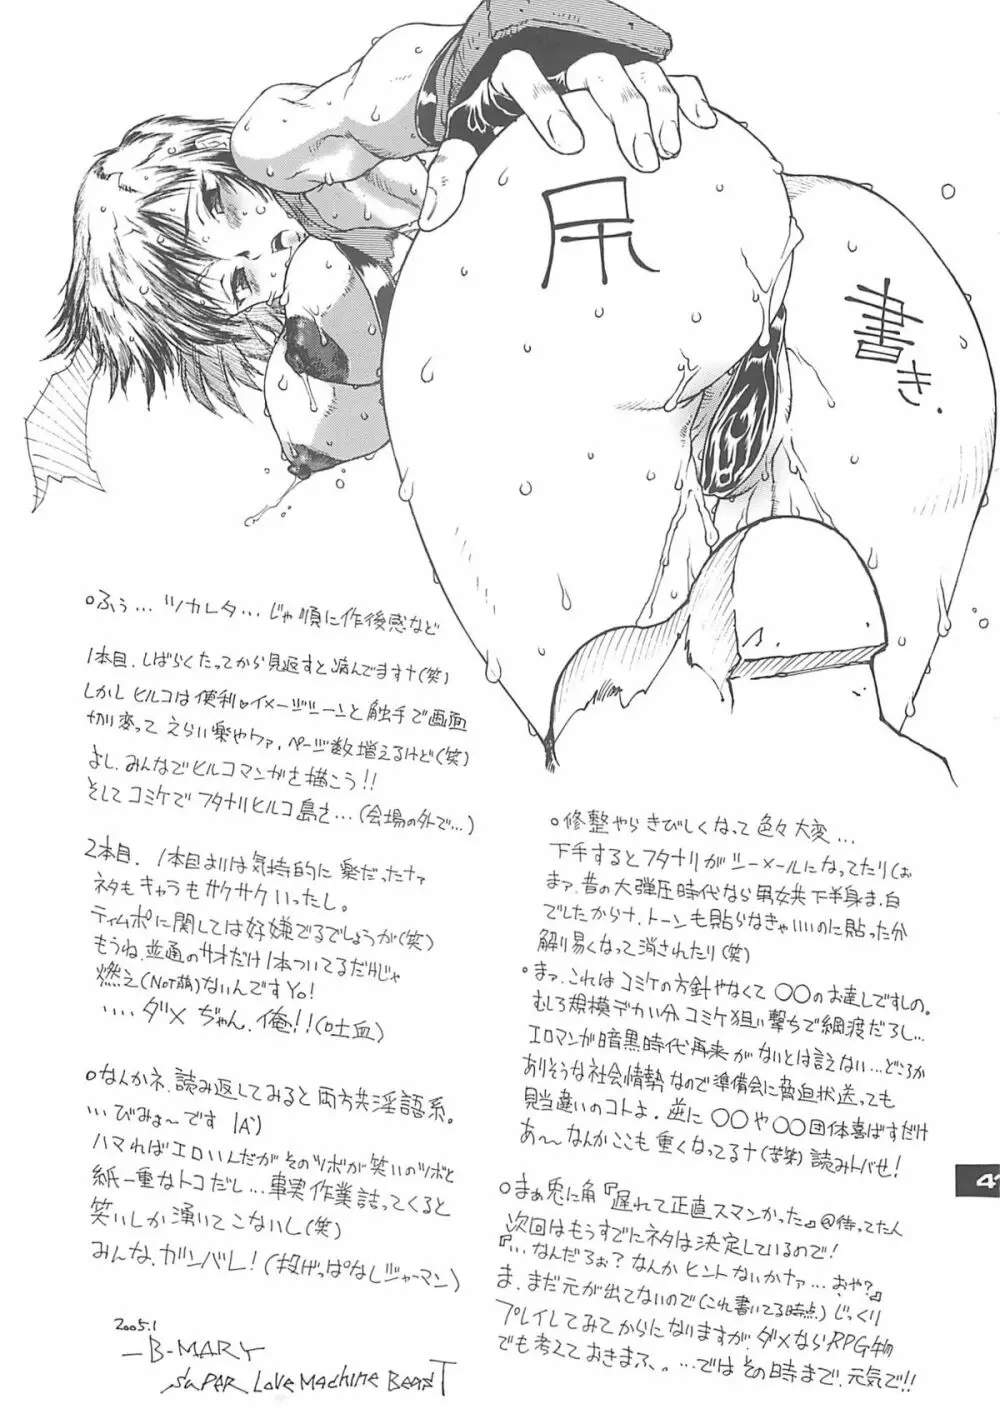 后
書き.
○ふぅ…ツカレタ…じゃ順に作後感など
1本目.しばらくたってから見返すと病んでますナ(笑)
しかしヒルコは便利♥イメージシーンと触手で画面
切り変って えらい楽やナァ、ページ数増えるけど(笑)
よし、みんなでヒルコマンガを描こう!!
そして コミケで フタナリヒルコ 島を…(会場の外で…)
2本目. 1本目よりは気持的に 楽だったナァ
ネタもキャラもサクサクいったし。
ティムポに関しては好嫌でるでしょうが(笑)
もうね、並通のサオだけ1本ついてるだけじゃ
燃え(NOT萌)ないんですYo!
…. ダメちゃん、俺!!(吐血)
○なんかネ、読み返してみると両方共淫語系。
…びみょ〜です(A')
ハマればエロいんだがそのツボが笑いのツボと
紙一重なトコだし…事実作業詰ってくると
笑いしか湧いてこないし(笑)
みんな、ガンバレ!(投げっぱなしジャーマン)
2005.1
—B-MARY
SUPER Love Machine BeasT
○修整やら きびしくなって 色々大変…
下手するとフタナリがシーメールになってたり(お
まァ、昔の大弾圧時代なら男女共下半身ま、白
でしたからナ、トーンも貼らなきゃいいのに貼った分
解り易くなって消されたり(笑)
○まァ、これはコミケの方針やなくて ○○のお達しですしの。
むしろ規模デカい分コミケ狙い撃ちで綱渡だろし…
エロマンガ暗黒時代再来がないとは言えない…どころか
ありそうな社会情勢なので準備会に脅迫状送っても
見当違いのコトよ、逆に ○○や○○団体喜ばすだけ
あ〜〜なんかここも重くなってるナ(苦笑)読みトバせ!
○まぁ兎に角『遅れて正直スマンかった』@待ってた人
次回はもうすでにネタは決定しているので!
『…なんだろぉ?なんかヒントないかナァ…おや?』
ま、まだ元が出てないので(これ書いてる時点)じっくり
プレイしてみてからになりますが、ダメならRPG物
でも考えておきまふ。。…では その時まで、元気で!!
41